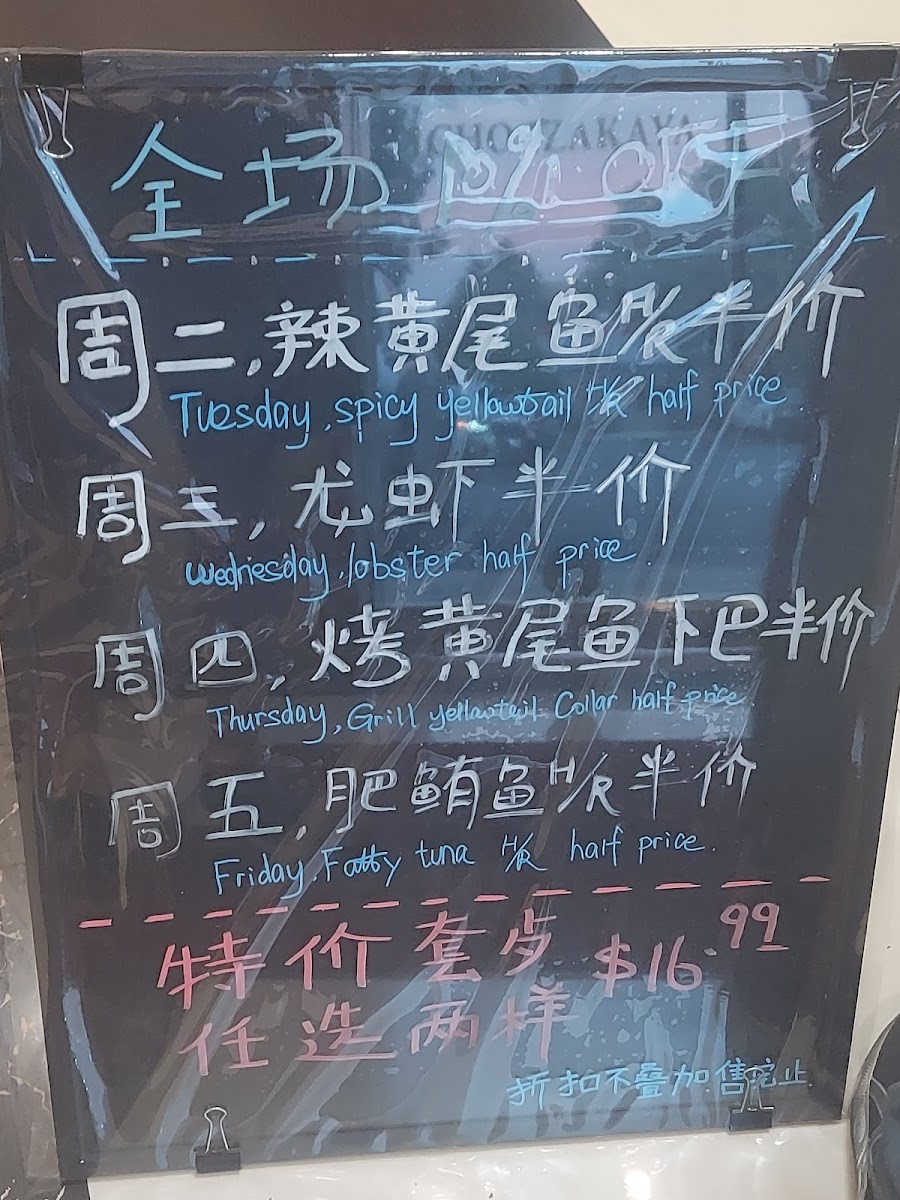 全场 10% OFF
周二,辣黄尾鱼H/R半价
Tuesday,spicy yellowtail H/R half price
周三,龙虾半价
Wednesday,lobster half price
周四,烤黄尾鱼下巴半价
Thursday,Grill yellowtail Collar half price
周五,肥鲔鱼H/R半价
Friday,Fatty tuna H/R half price.
特价套歺 $16.99
任选两样
折扣不叠加.售完止